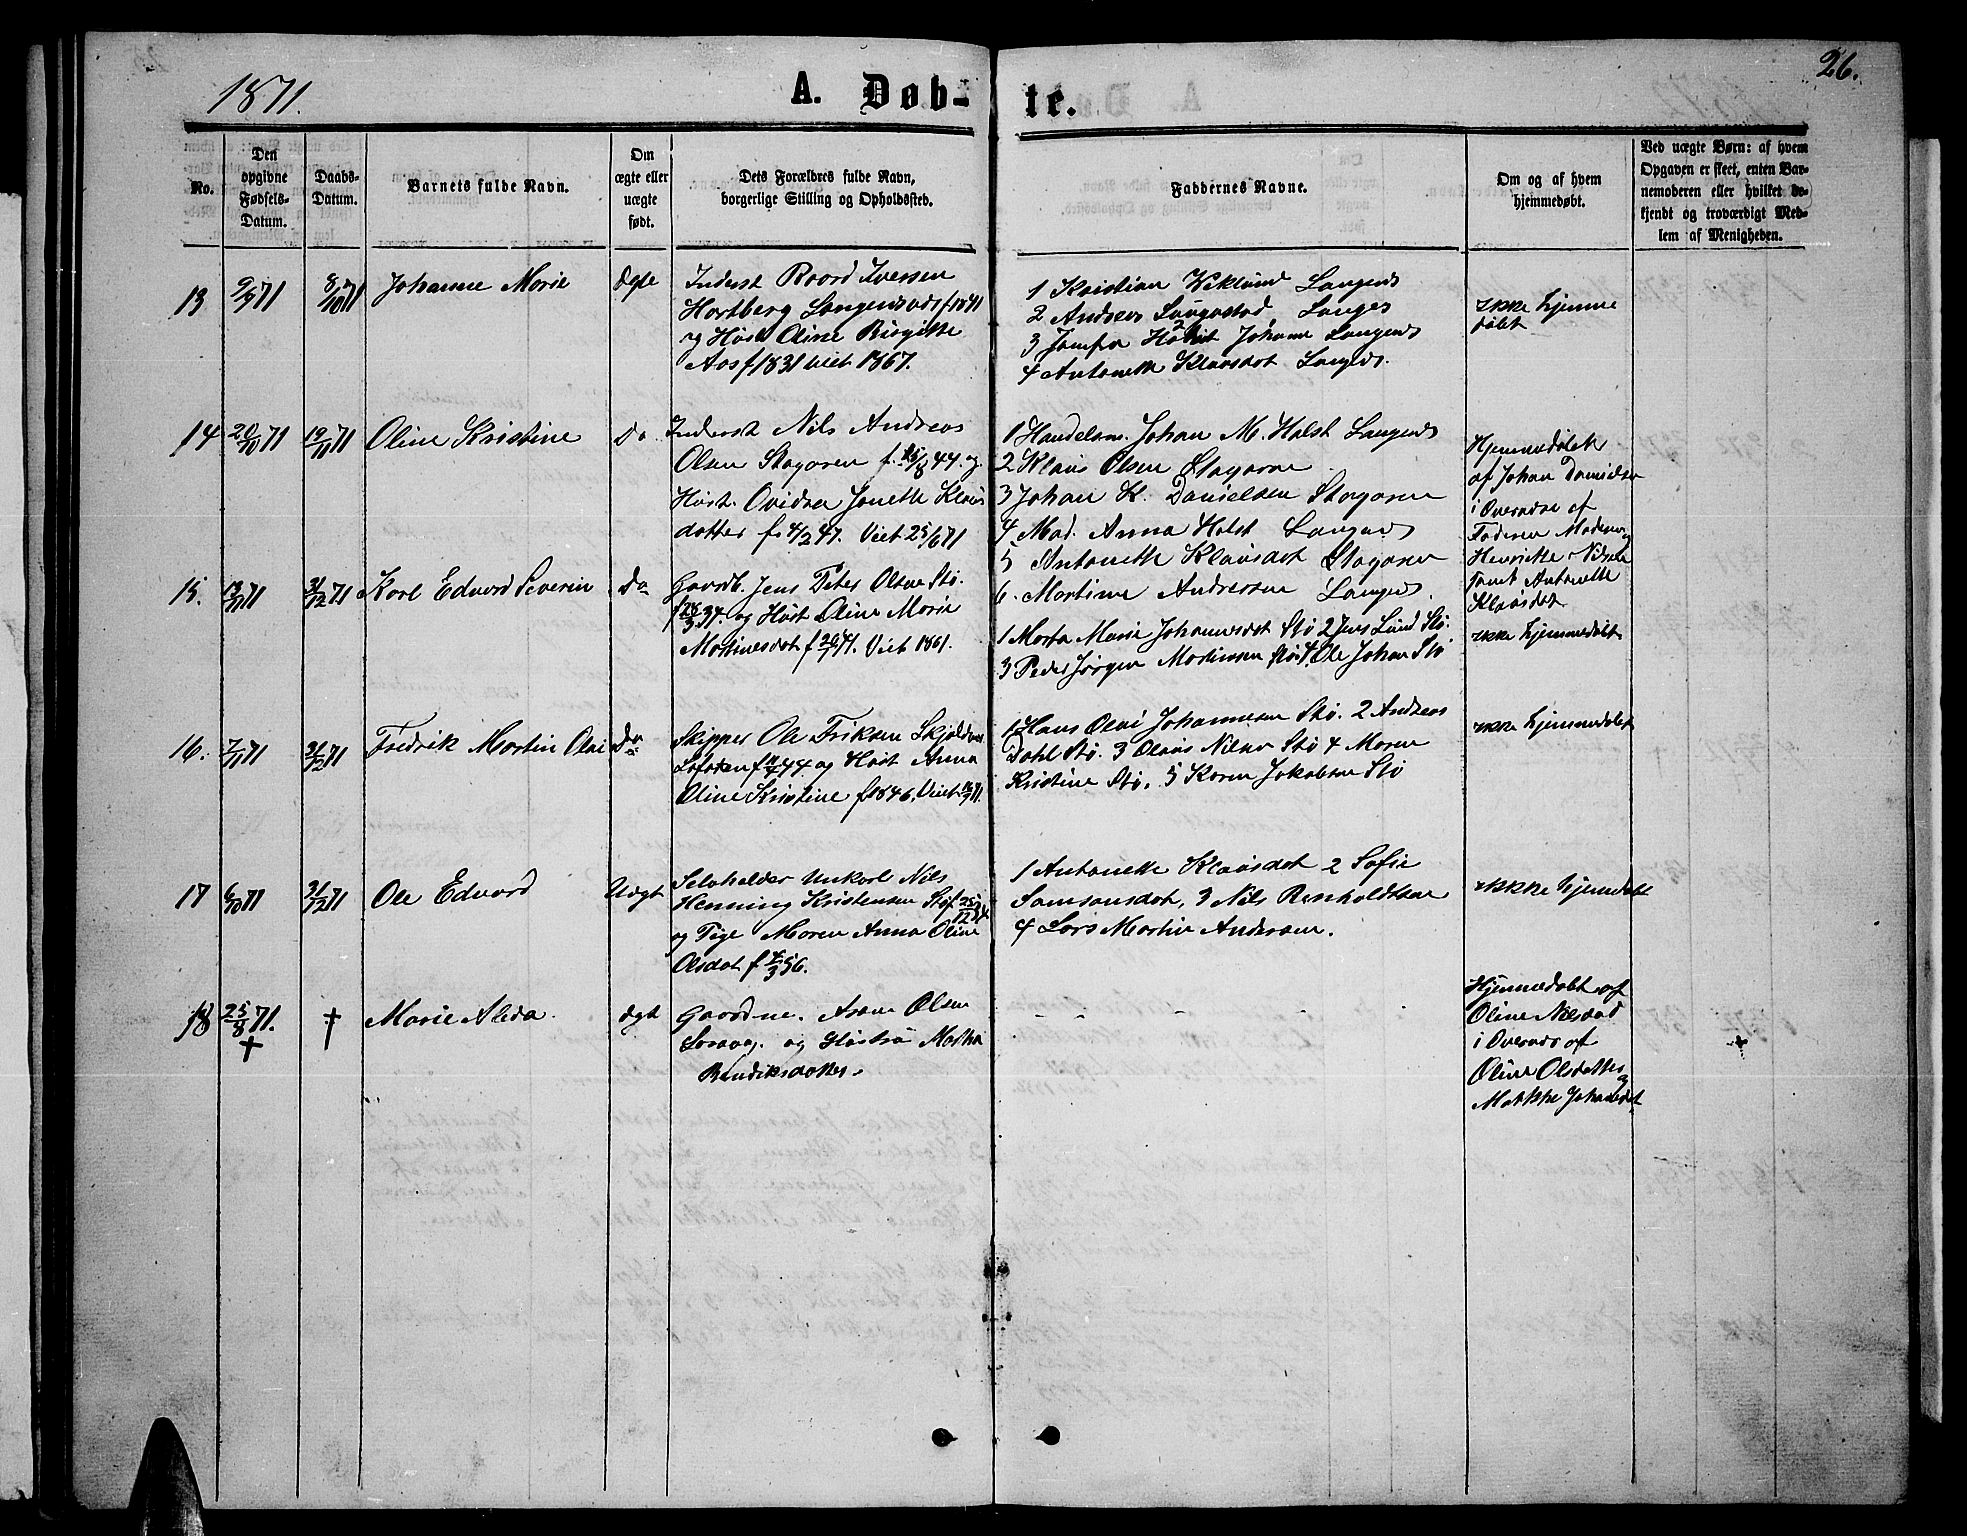 1871.
A. Døb-
te.
26.
No.
Den
opgivne
Fødsels-
Datum.
Daabs-
Datum.
Barnets fulde Navn.
Om
ægte eller
uægte
født.
Dets Forældres fulde Navn,
borgerlige Stilling og Opholdssted.
Faddernes Navne.
Om og af hvem
hjemmedøbt.
Ved uægte Børn: af hvem
Opgaven er skeet, enten Bar-
nemoderen eller hvilket be-
kjendt og troværdigt Med-
lem af Menigheden.
13
9/9 71
8/10 71
Johanne Marie
ægte
Inderst Roord Iversen
Hartberg f 1841
og Hust Oline Birgitte
Aas f 1831 viet 1867.
1 Kristian Viklund Langens
2 Andreas Langes
3 Jomfru Johanne Langens
4 Antonette Klausdat Langens.
ikke hjemme
døbt
14
20/10 71
19/11 71
Oline Kristine
Do
Inderst Nils Andreas
Olsen Stagoren f. 15/8 44. og
Hust. Ovidia Jonette Klaus
datter f. 4/2 47. Viet 25/6 71
1 Handelsm. Johan M. Holst Langens
2 Klaus Olsen Stagoren
3 Johan K. Danielsen Stagoren
4 Mad. Anna Holst Langens
5 Antonette Klausdat Stagoren
6. Martine Andresen Langens.
Hjemmedøbt
af Johan Danielsen
i Overvær af
Faderen Moderen og
Henriette Nilsen
samt Antonette
Klausdat
15.
13/11 71
31/12 71
Karl Edvard Severin
Do
Gaardb. Jens Peter Olsen Stø.
f 28/3 34. og Hust Oline Marie
Martinesdat f 20/7 41. Viet 1861.
1 Marta Marie Johannesdat Stø 2 Jens Lund Stø.
3 Peder Jørgen Martinsen Stø 4 Ole Johan Stø
ikke hjemmedøbt
16.
7/11 71
31/12 71
Fredrik Martin Olai
Do
Skipper Ole Eriksen
Lofoten f 11/7 44 og Hust Anna
Oline Kristine f 1846. Viet 71.
1 Hans Olai Johannesen Stø. 2 Andreas
Dahl Stø. 3 Olaus Nilsen Stø 4 Maren
Kristine Stø. 5 Karen Jakobsen Stø
ikke hjemmedøbt
17
6/10 71
31/12 71
Ole Edvard
Uægt
Selvholder Unkarl Nils
Henning Kristensen Stø f 25/12
og Pige Maren Anna Oline
Olsdat f 4/3 56.
1 Antonette Klausdat 2 Sofie
Samsonsdat, 3 Nils Renholdtsen
4 Lars Martin Andersen.
ikke hjemmedøbt
18
25/8 71.
†
†
Marie Alida
ægt
Gaardm. Aron Olsen
og Hustru Martha
Bendiksdatter.
- - - - -
Hjemmedøbt af
Oline Nilsdad
i Overvær af
Oline Olsdatter og
Makke Johansdat